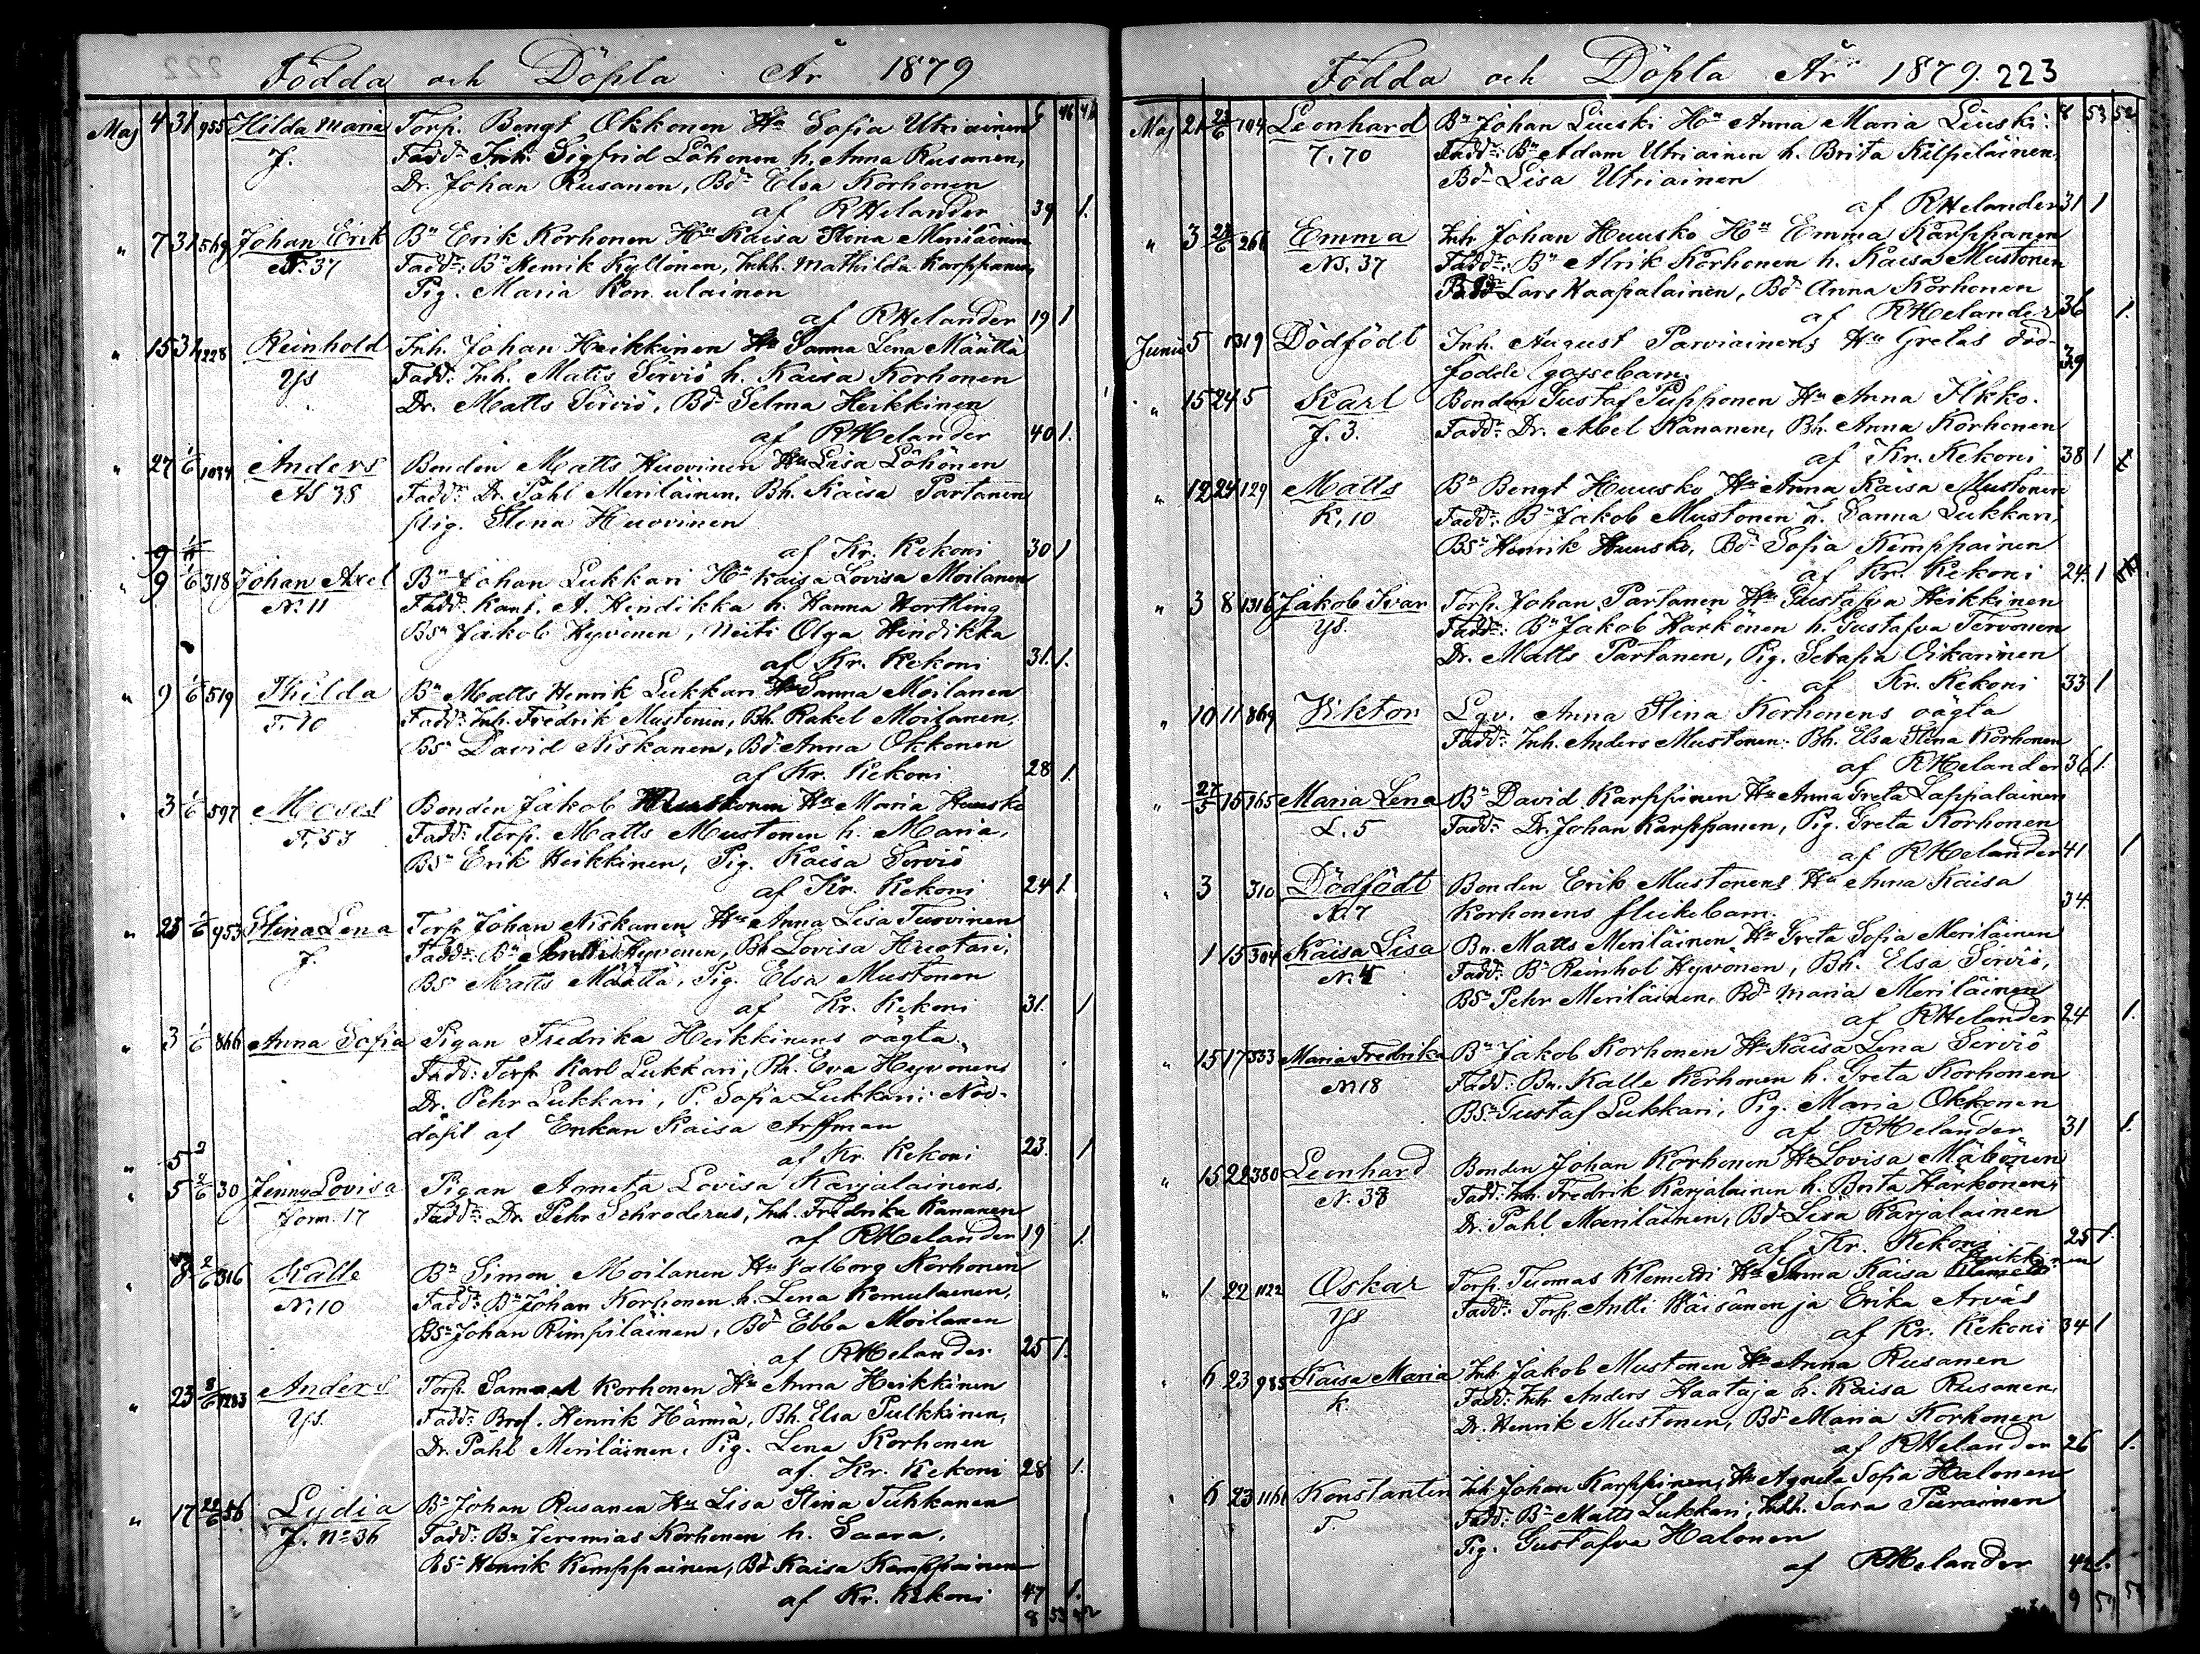 222
Födda och Döpta År 1879
Maj 4 31 955 Hilda Maria Torp. Bengt Okkonen Hu Sofia Utriainen 6 46 41
J. Fadd: Inh. Sigfrid Löhönen h. Anna Rusanen,
Dr. Johan Rusanen, Bd. Elsa Korhonen
af RHelander 39 1.
" 7 31 569 Johan Erik Bn Erik Korhonen Hu Kaisa Stina Meriläinen
N. 37 Fadd: Bn Henrik Kyllönen, Inhh. Mathilda Karppanen,
Pig. Maria Komulainen
af RHelander 19 1
" 15 31 1228 Reinhold Inh. Johan Heikkinen Hu Sanna Lena Määttä
Ys Fadd: Inh. Matts Serviö h. Kaisa Korhonen
Dr. Matts Serviö, Bd. Selma Heikkinen
af RHelander 40 1.
" 27 1/6 1034 Anders Bonden Matts Huovinen Hu Lisa Löhönen
NS 38 Fadd: Dr. Påhl Meriläinen, Bh. Kaisa Partanen
Pig. Stina Huovinen
9 1/6 af Kr. Kekoni 30 1
" 9 1/6 318 Johan Axel Bn Johan Lukkari Hu Kaisa Lovisa Moilanen
N. 11 Fadd: Kant. A. Hindikka h. Hanna Wortling
Bsn Jakob Hyvönen, Neiti Olga Hindikka
af Kr. Kekoni 31. 1.
" 9 1/6 519 Thilda Bn Matts Henrik Lukkari Hu Sanna Moilanen
T. 10 Fadd: Inh. Fredrik Mustonen, Bh. Rakel Moilanen,
Bsn David Niskanen, Bd. Anna Okkonen
af Kr. Kekoni 28 1.
" 3 1/6 597 Moses Bonden Jakob Mustonen Hu Maria Huusko
T. 53 Fadd: Torp. Matts Mustonen h. Maria,
Bsn Erik Heikkinen, Pig. Kaisa Serviö
af Kr. Kekoni 24 1.
" 23 1/6 953 Stina Lena Torp. Johan Niskanen Hu Anna Lisa Tuovinen
J. Fadd: Bn Antti Hyvönen, Bh Lovisa Huotari,
Bsn Matts Määttä, Pig. Elsa Mustonen
af Kr. Kekoni 31. 1
" 3 1/6 866 Anna Sofia Pigan Fredrika Heikkinens oägta
Fadd: Torp. Karl Lukkari, Bh. Eva Hyvönen
Dr. Pehr Lukkari, P. Sofia Lukkari; Nöd-
döpt af Enkan Kaisa Arffman
" 5 2 af Kr. Kekoni 23. 1
" 5 2/6 30 Jenny Lovisa Pigan Agneta Lovisa Karjalainens
Form. 17 Fadd: Dr. Pehr Schroderus, Inh. Fredrika Kananen
af RHelander 19 1.
" 8 2/6 316 Kalle Bn Simon Moilanen Hu Valborg Korhonen
N. 10 Fadd: Bn Johan Korhonen h. Lena Komulainen,
Bsn Johan Rimpiläinen, Bd. Ebba Moilanen
af RHelander 25 1.
" 23 8/6 1203 Anders Torp. Samuel Korhonen Hu Anna Heikkinen
Ys. Fadd: Henrik Härmä, Bh. Elsa Pulkkinen,
Dr. Påhl Meriläinen, Pig. Lena Korhonen
af. Kr. Kekoni 28 1.
" 17 22/6 56 Lydia Bn Johan Rusanen Hu Lisa Stina Tuhkanen
J. No 36 Fadd: Bn Jeremias Korhonen h. Saara,
Bsn Henrik Kemppainen, Bd Kaisa Kemppainen
af Kr. Kekoni 47 1.
8 53 52
Födda och Döpta År 1879. 223
Maj 21 23/6 104 Leonhard Bn Johan Liuski Hu Anna Maria Liuski. 8 53 52
7. 70 Fadd: Bn Adam Utriainen h. Brita Kilpeläinen,
Bd. Lisa Utriainen
af RHelander 31 1
" 3 23/6 266 Emma Inh Johan Huusko Hu Emma Karppanen
NS. 37 Fadd: Bn Alrik Korhonen h. Kaisa Mustonen
Lars Haapalainen, Bd. Anna Korhonen
af RHelander 36 1.
Junii 5 1319 Dödfödt Inh. August Parviainens Hu Gretas död-
födde gossebarn. 39
" 15 24 5 Karl Bonden Gustaf Pupponen Hu Anna Ilkko.
J. 3. Fadd: Dr. Abel Kananen, Bh. Anna Korhonen
af Kr. Kekoni 38 1
" 12 24 129 Matts Bn Bengt Huusko Hu Anna Kaisa Mustonen
K. 10 Fadd: Bn Jakob Mustonen h. Sanna Lukkari,
Bsn Henrik Huusko, Bd. Sofia Kemppainen
af Kr. Kekoni 24. 1
" 3 8 1316 Jakob Ivar Torp. Johan Partanen Hu Gustafva Heikkinen
Ys. Fadd: Bn Jakob Harkönen h. Gustafva Tervonen
Dr. Matts Partanen, Pig. Serafia Oikarinen
af Kr. Kekoni 33 1
" 10 11 869 Viktor Lgv. Anna Stina Korhonens oägta
Fadd: Inh. Anders Mustonen. Bh. Elsa Stina Korhonen
af RHelander 36 1.
" 27/5 15 165 Maria Lena Bn David Karppinen Hu Anna Greta Lappalainen
L. 5 Fadd: Dr. Johan Karppanen, Pig. Greta Korhonen
af RHelander 41 1
" 3 310 Dödfödt Bonden Erik Mustonens Hu Anna Kaisa
N. 7 Korhonens flickebarn. 34
1 15 304 Kaisa Lisa Bn. Matts Meriläinen Hu Greta Sofia Meriläinen
N. 4 Fadd: Bn Reinhol Hyvönen, Bh. Elsa Serviö,
Bsn Pehr Meriläinen, Bd. Maria Meriläinen
af RHelander 24 1.
" 15 17 333 Maria Fredrika Bn Jakob Korhonen Hu Kaisa Lena Serviö
N. 18 Fadd: Bn. Kalle Korhonen h. Greta Korhonen
Bsn Gustaf Lukkari, Pig. Maria Okkonen
af RHelander 31 1.
" 15 22 380 Leonhard Bonden Johan Korhonen Hu Lovisa
N. 38 Fadd: Inh. Fredrik Karjalainen h. Brita Härkönen,
Dr. Påhl Meriläinen, Bd. Lisa Karjalainen
af Kr. Kekoni 25 1.
" 1 22 1122 Oskar Torp. Tuomas Klemetti Hu Anna Kaisa Heikkinen
Ys Fadd: Torp. Antti Wäisänen ja Erika Arväs
af Kr. Kekoni 34 1
" 6 23 985 Kaisa Maria Inh Jakob Mustonen Hu Anna Rusanen
K. Fadd: Inh Anders Haataja h. Kaisa Rusanen,
Dr. Henrik Mustonen, Bd. Maria Korhonen
af RHelander 26 1.
" 6 23 1161 Konstantin Inh Johan Karppinen, Hu Agneta Sofia Halonen
T. Fadd: Bn Matts Lukkari, Inhh. Sara Piirainen
Pig. Gustafva Halonen
af RHelander 42 1.
9